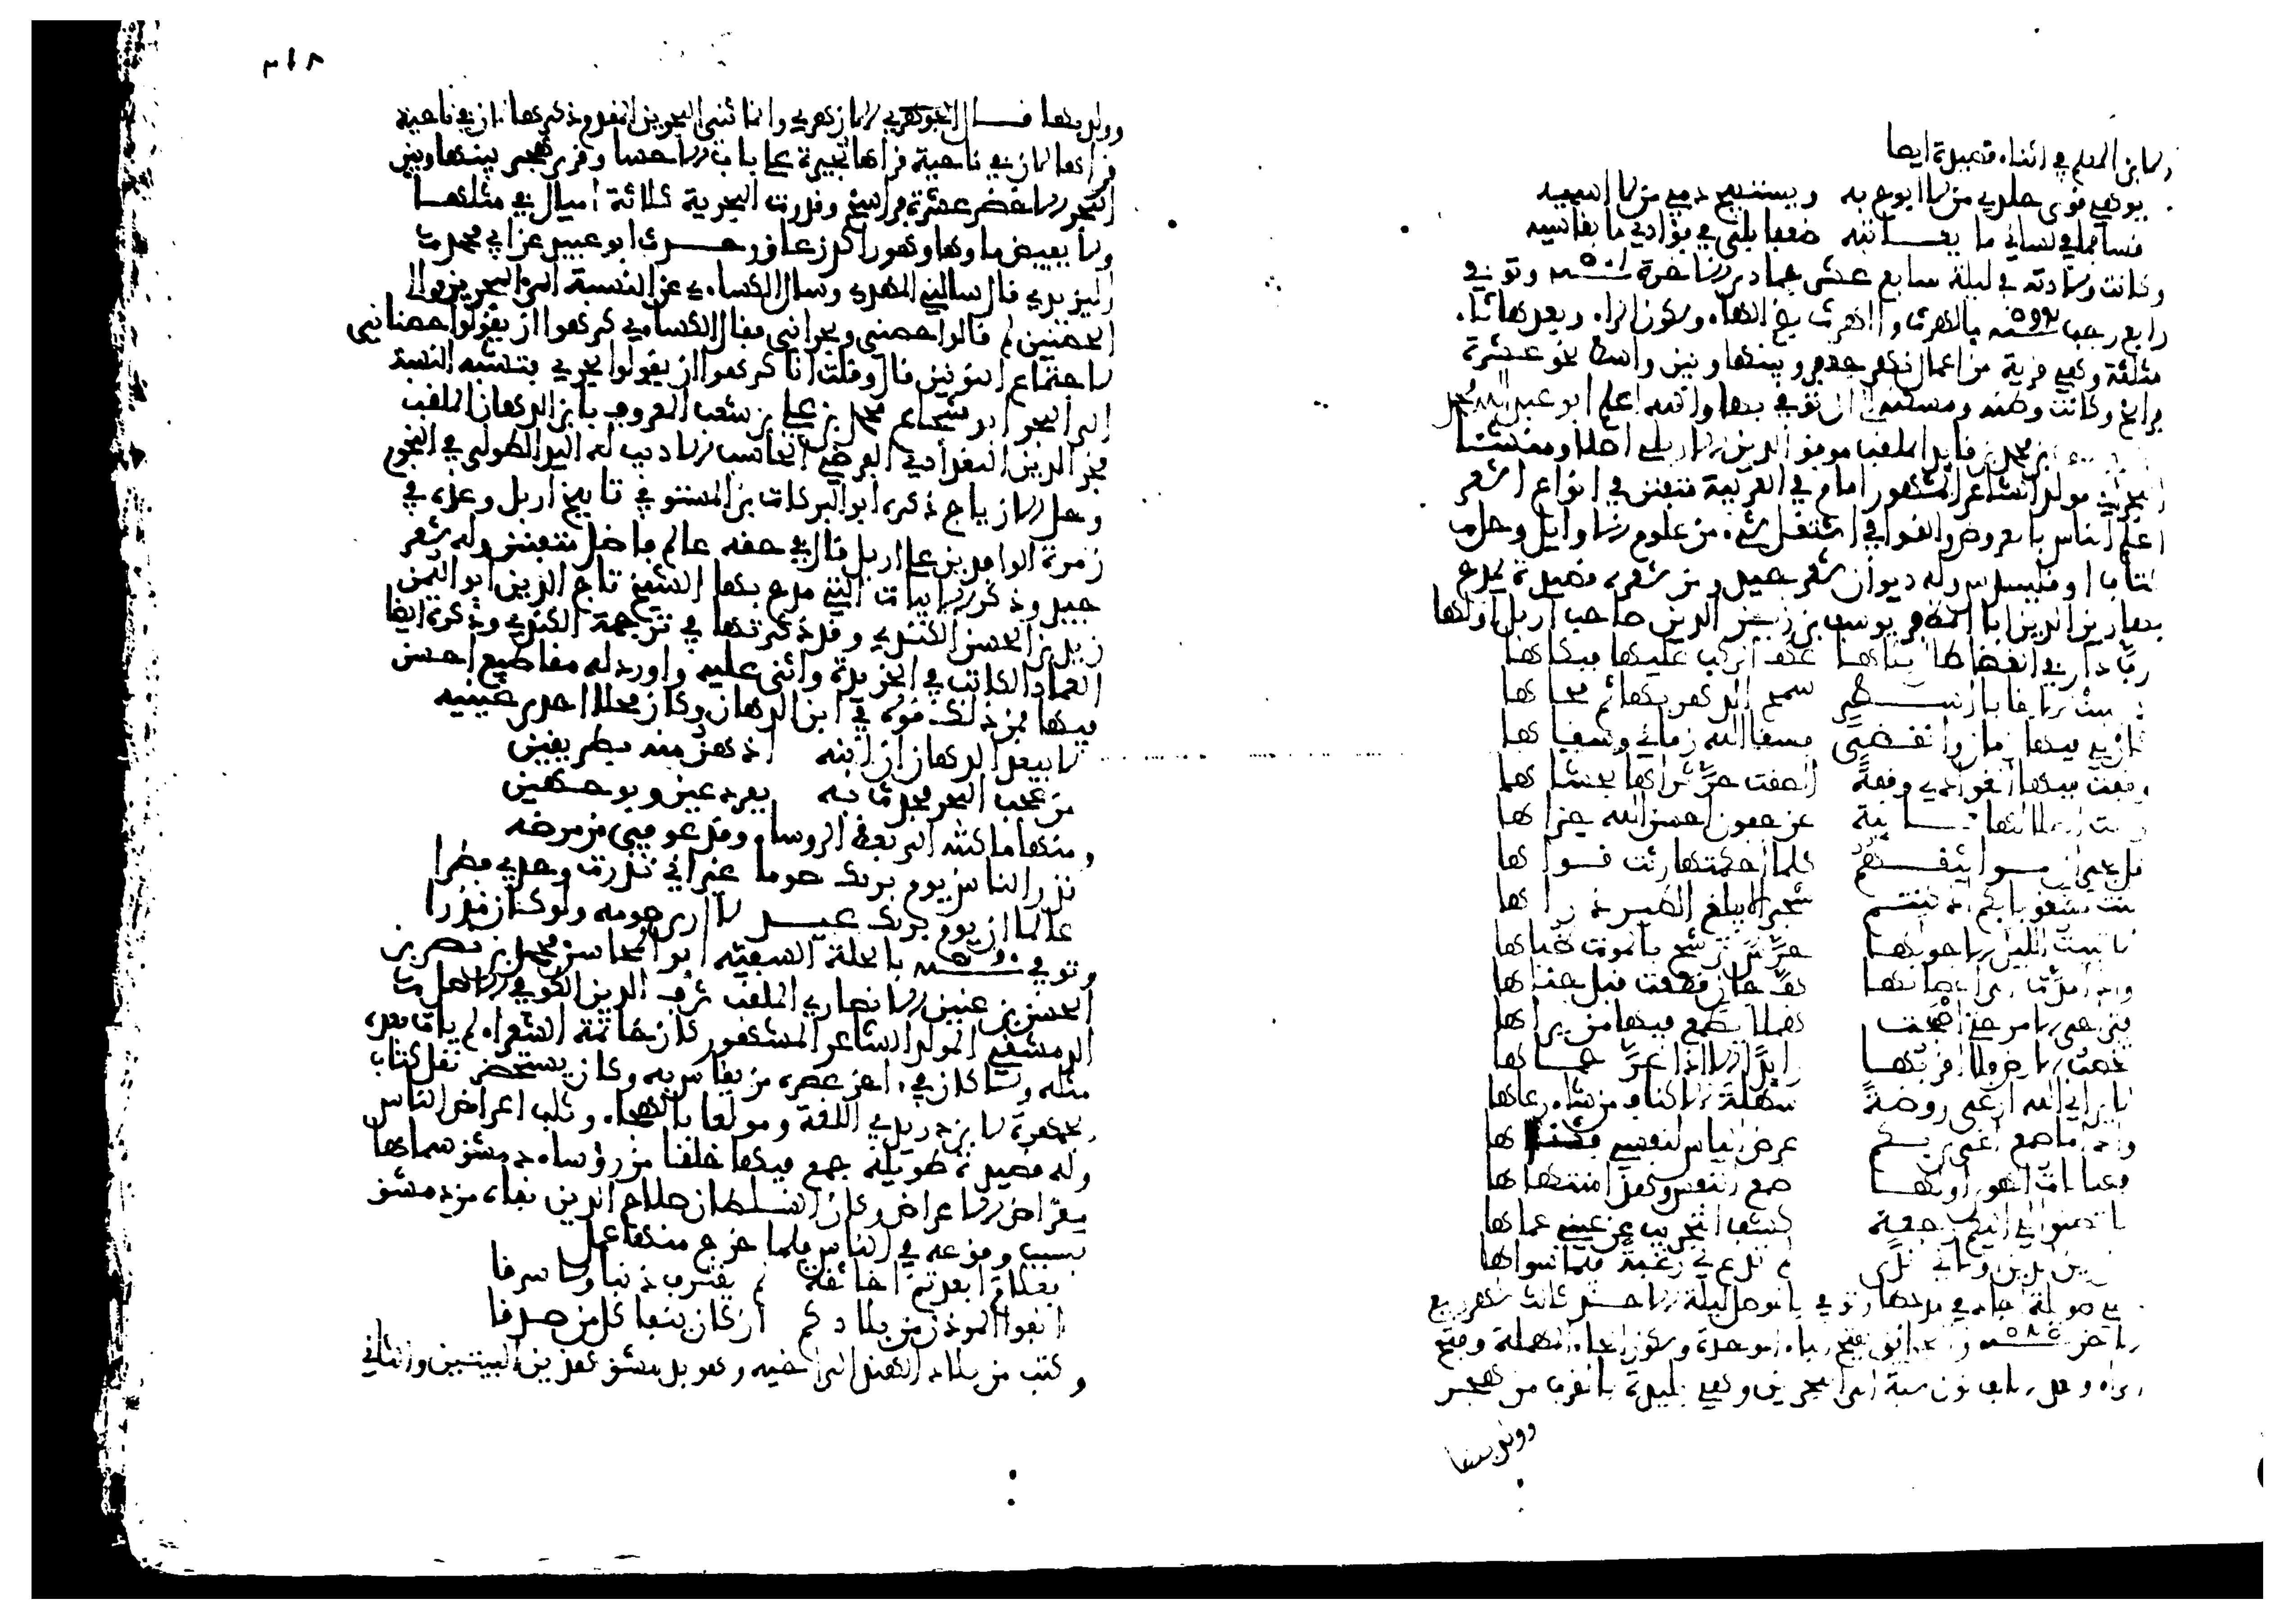 ولابن المعلم في اثناء قصيدة ايضا
يوهي قوى جلدي من لا ابوح به ويستبيح دمي من لا اسميه
قسا فما في لساني ما يعاتبه ضعفا بلى في فؤادي ما يقاسيه
وكانت ولادته في ليلة سابع عشر جمادى الاخرة سنة ٥٠١ وتوفي
رابع رجب سنة ٥٩٢ بالهرث والهرث بضم الهاء وسكون الراء وبعدها ثاء
مثلثة وهي قرية من اعمال نهر جعفر وبينها وبين واسط نحو عشرة
فراسخ وكانت وطنه ومسكنه الى ان توفي بها والله اعلم ابو عبد الله محمد
بن محمد بن قايد الملقب موفق الدين الاربلي اصلا ومنشئا
البحراني مولدا الشاعر المشهور امام في العربية متفنن في انواع الشعر
اعلم الناس بالعروض والقوافي اشتغل بشيء من علوم الاوايل وحل
كتاب اوقليدس وله ديوان شعر جيد ومن شعره قصيدة يمدح
بها زين الدين ابا المظفر يوسف بن زين الدين صاحب اربل اولها
رب دار بالغضا طال بلاها عكف الركب عليها فبكاها
كان لي فيها زمان وانقضى فسقى الله زماني وسقاها
وقفت فيها الغوادي وقفة الصقت حر ثراها بحشاها
قل لجيران مواثيقهم كلما احكمتها رثت قواها
كنت مشغوفا بكم اذ كنتم شجرا لا يبلغ الطير ذراها
لا تبيت الليل الا حولها حرس ترشح بالموت ظباها
واذا مدت الى اغصانها كف جان قطعت قبل جناها
فتراخى الامر حتى اصبحت هملا يطمع فيها من يراها
تخصب الارض فلا اقربها رائدا الا اذا عز حماها
لا يراني الله ارعى روضة سهلة الاكناف من شاء رعاها
واذا ما طمع اغرى بكم عرض الياس لنفسي فثناها
فصبابات الهوى اولها طمع النفس وهذا منتهاها
لا تظنوا لي اليكم رجعة كشف التجريب عن عيني عماها
ان زين الدين اولاني يدا لم تدع لي رغبة فيما سواها
وهي طويلة اجاد في مدحها وتوفي باربل ليلة الاحد ثالث شهر ربيع
الاخر سنة ٥٨٥ والبحراني بفتح الباء الموحدة وسكون الحاء المهملة وفتح
الراء وبعد الالف نون نسبة الى البحرين وهي بليدة بالقرب من هجر
وولد بها
٣١٨
وولد بها قال الجوهري الازهري وانما ثنى البحرين لان في ناحية
قراها لان في ناحية قراها بحيرة على باب الاحسا وقرى هجر بينها وبين
البحر الاخضر عشرة فراسخ وقدرت البحيرة ثلاثة اميال في مثلها
ولا يغيض ماوها وهو راكد زعاق وحدث ابو عبيد عن ابي محمد
اليزيدي قال سالني المهدي وسال الكسائي عن النسبة الى البحرين والى
الحصنين لم قالوا حصني وبحراني فقال الكسائي كرهوا ان يقولوا حصناني
لاجتماع النونين قال وقلت انا كرهوا ان يقولوا بحري فتشبه النسبة
الى البحر ابو شجاع محمد بن علي بن شعيب المعروف بابن الدهان الملقب
فخر الدين البغدادي الفرضي الحاسب الاديب له اليد الطولى في النجوم
وحل الازياج ذكره ابو البركات بن المستوفي في تاريخ اربل وعده في
زمرة الوافدين على اربل قال في حقه عالم فاضل متفنن وله شعر
جيد وذكر الابيات التي مدح بها الشيخ تاج الدين ابو اليمن
زيد بن الحسن الكندي وقد ذكرتها في ترجمة الكندي وذكره ايضا
العماد الكاتب في الخريدة واثنى عليه واورد له مقاطيع احسن
فيها فمن ذلك قوله في ابن الدهان وكان مخلا احدى عينيه
لا يبعد الدهان ان ابنه ادهن منه بطريقين
من عجب البحر فحدث به بفرد عين وبوجهين
ومنها ما كتبه الى بعض الروساء وقد عوفي من مرضه
نذر الناس يوم برئك صوما غير اني نذرت وحدي فطرا
عالما ان يوم برئك عيد لا ارى صومه ولو كان نذرا
وتوفي سنة ٥٩٠ بالحلة السيفية ابو المحاسن محمد بن نصر بن
الحسين بن عنين الانصاري الملقب شرف الدين الكوفي الاصل
الدمشقي المولد الشاعر المشهور كان خاتمة الشعراء لم يات بعده
مثله ولا كان في اخر عصره من يقاس به وكان يستحضر نقل كتاب
الجمهرة لابن دريد في اللغة ومولعا بالهجاء وثلب اعراض الناس
وله قصيدة طويلة جمع فيها خلقا من رؤساء دمشق سماها
مقراض الاعراض وكان السلطان صلاح الدين نفاه من دمشق
بسبب وقوعه في الناس فلما خرج منها عمل
فعلام ابعدتم اخا ثقة لم يقترف ذنبا ولا سرقا
انفوا الموذن من بلادكم ان كان ينفى كل من صدقا
وكتب من بلاد الهند الى اخيه وهو بدمشق هذين البيتين والثاني